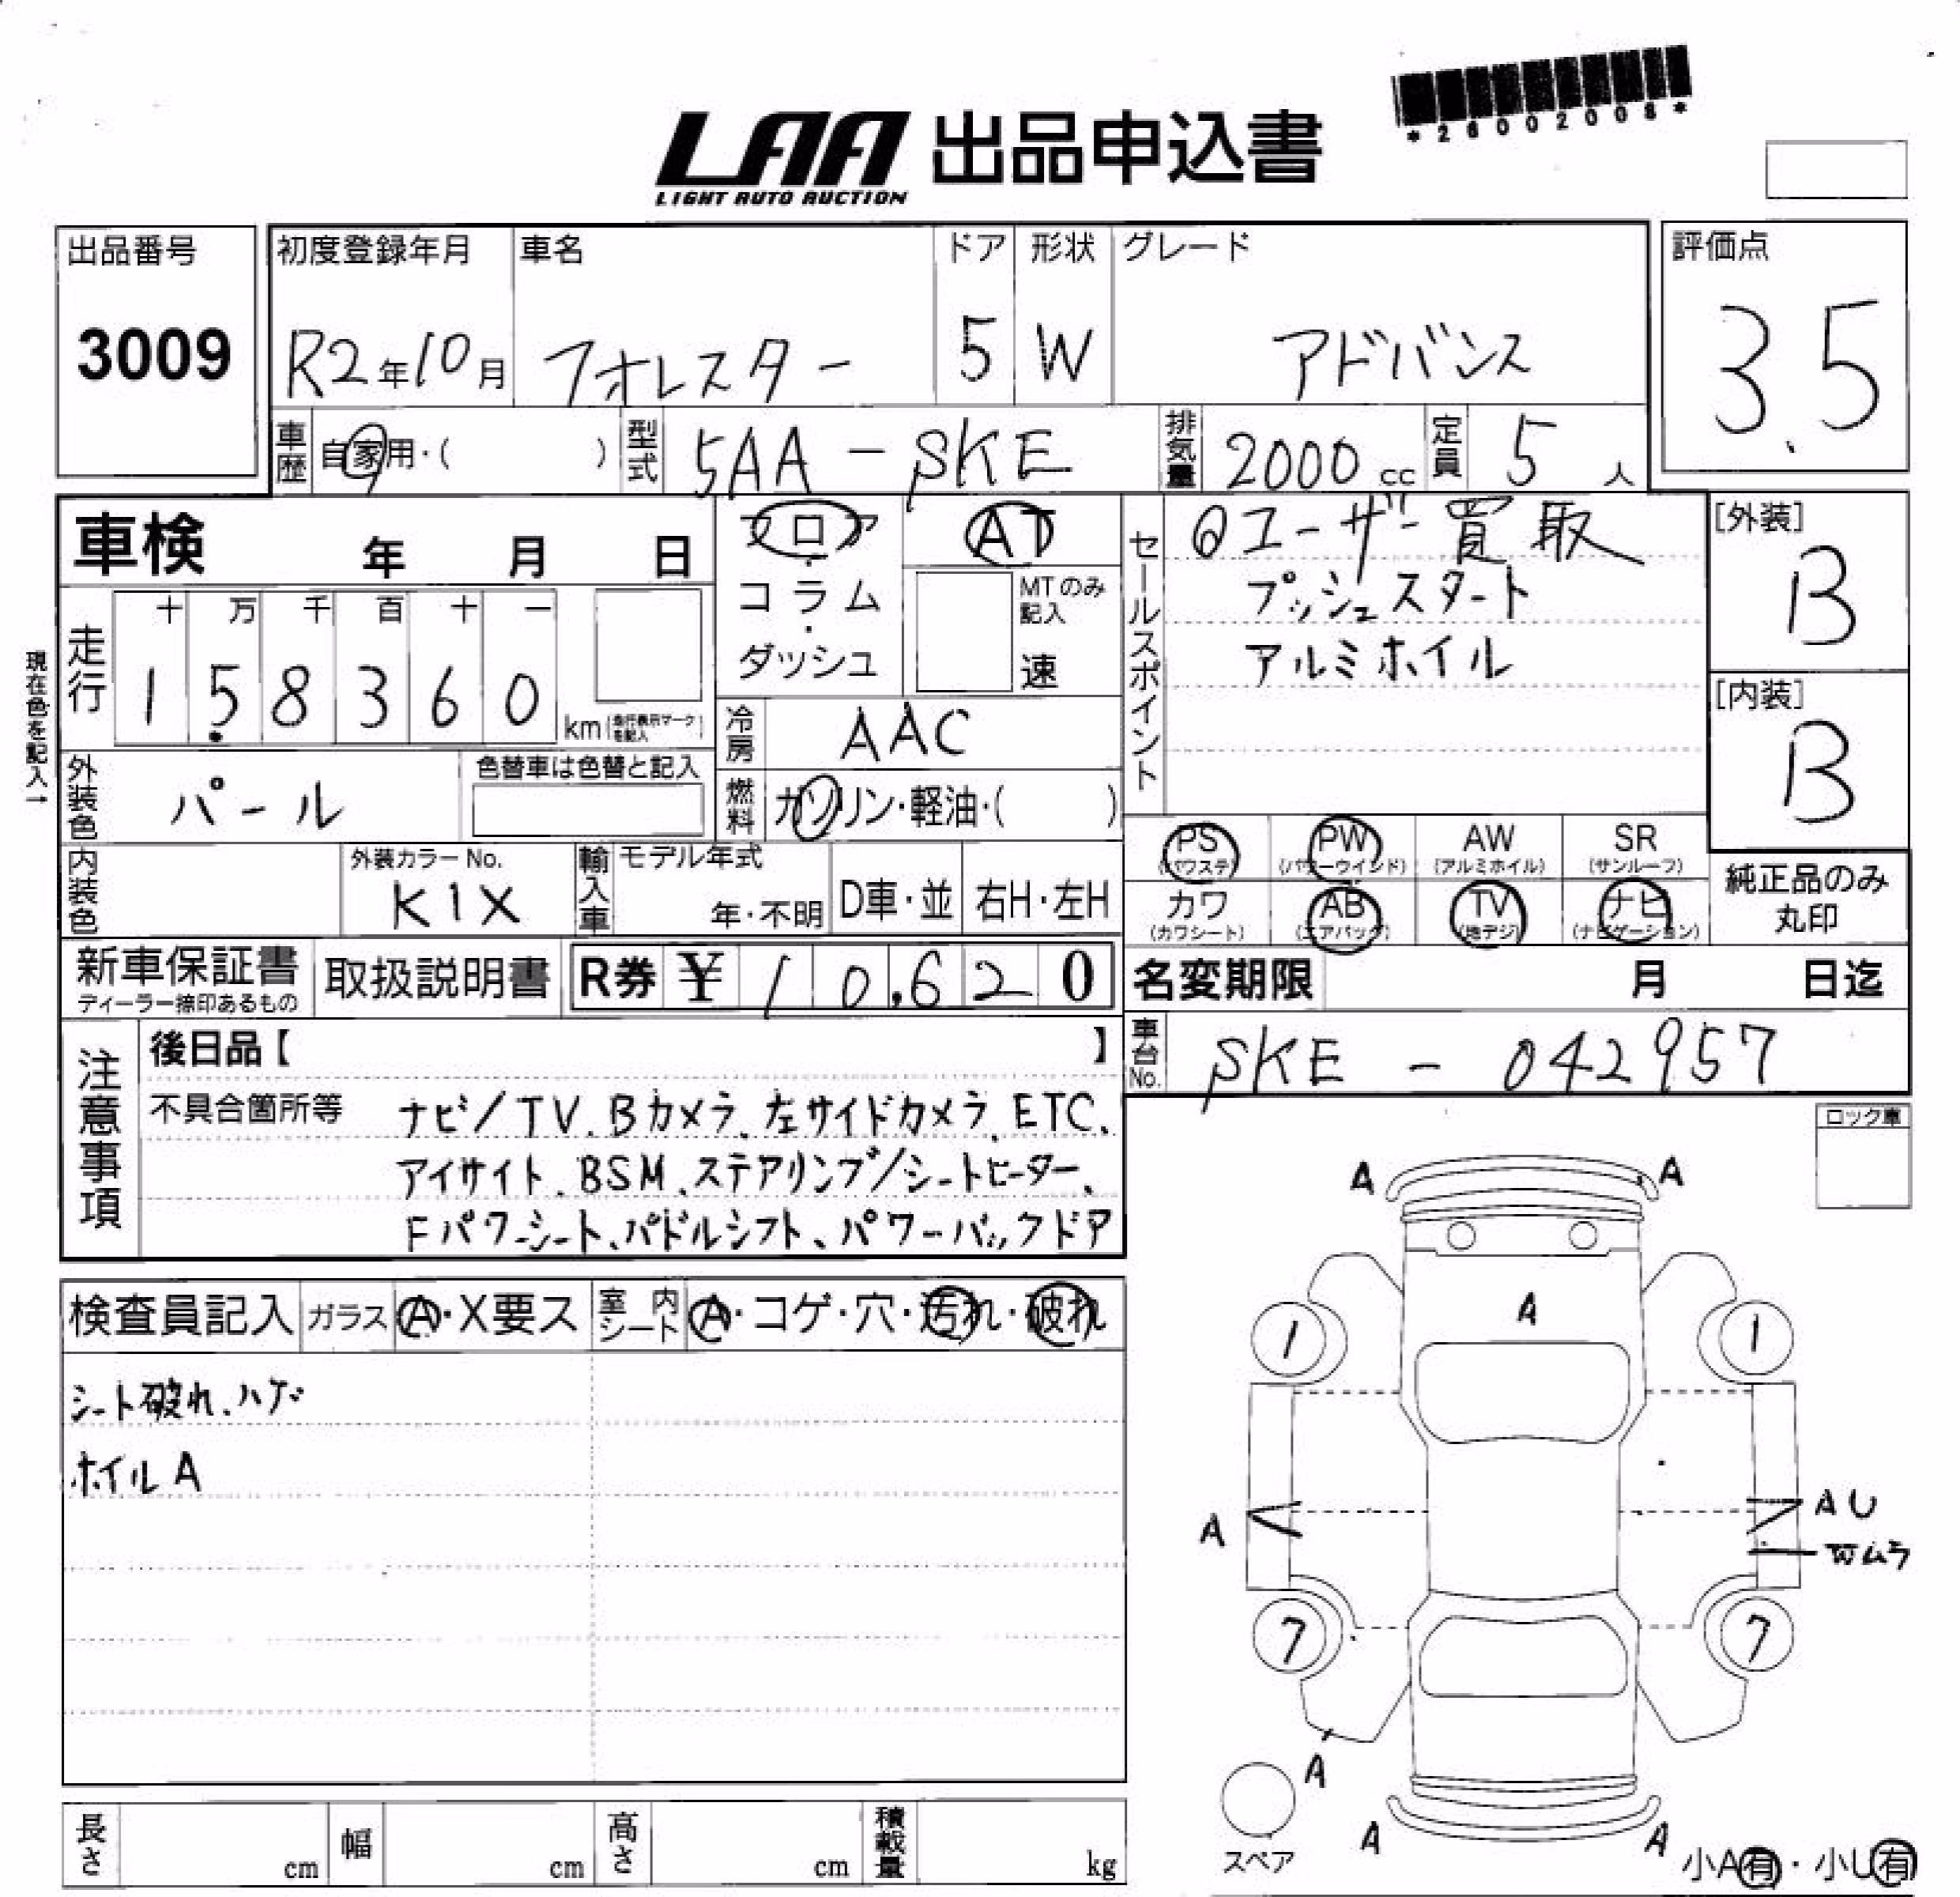 *26002008*
LAA 出品申込書
LIGHT AUTO AUCTION
出品番号
3009
初度登録年月
R2年10月
車名
フォレスター
ドア
5
形状
W
グレード
アドバンス
評価点
3.5
車歴
自家用・( )
型式
5AA-SKE
排気量
2000cc
定員
5人
車検 年 月 日
フロア
・
コラム
・
ダッシュ
AT
MTのみ
記入
速
セールスポイント
◎ユーザー買取
プッシュスタート
アルミホイル
[外装]
B
[内装]
B
現在色を記入→
走行
十 万 千 百 十 一
1 5 8 3 6 0 km
(走行表示マークを記入)
冷房
AAC
外装色
パール
色替車は色替と記入
燃料
ガソリン・軽油・( )
PS
(パワステ)
PW
(パワーウインド)
AW
(アルミホイル)
SR
(サンルーフ)
カワ
(カワシート)
AB
(エアバッグ)
TV
(地デジ)
ナビ
(ナビゲーション)
純正品のみ
丸印
内装色
外装カラーNo.
K1X
輸入車
モデル年式
年・不明
D車・並
右H・左H
新車保証書
ディーラー捺印あるもの
取扱説明書
R券 ¥ 10.620
名変期限 月 日迄
車台No.
SKE-042957
注意事項
後日品【 】
不具合箇所等
ナビ/TV、Bカメラ、左サイドカメラ、ETC、
アイサイト、BSM、ステアリング/シートヒーター、
Fパワーシート、パドルシフト、パワーバックドア
ロック庫
検査員記入
ガラス
A・X要ス
室内
シート
A・コゲ・穴・汚れ・破れ
シート破れ、ハゲ
ホイルA
A
A
A
1
1
A
AU
Wムラ
7
7
A
A
A
スペア
小A有・小U有
長さ cm
幅 cm
高さ cm
積載量 kg